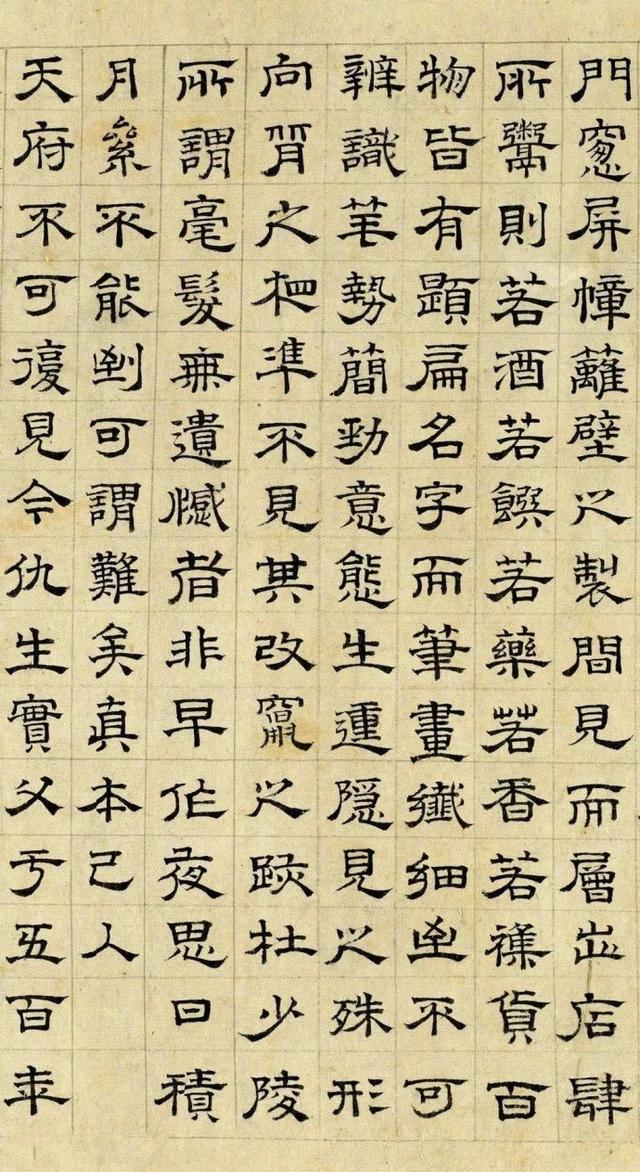 門窻屏幛籬壁之製間見而層出店肆
所鬻則若酒若饌若藥若香若襍貨百
物皆有題扁名字而筆畫纖細至不可
辨識笔勢簡勁意態生運隱見之殊形
向背之相準不見其改竄之跡杜少陵
所謂毫髮無遺憾者非早作夜思日積
月絫不能到可謂難矣真本已入
天府不可復見今仇生實父亏五百年